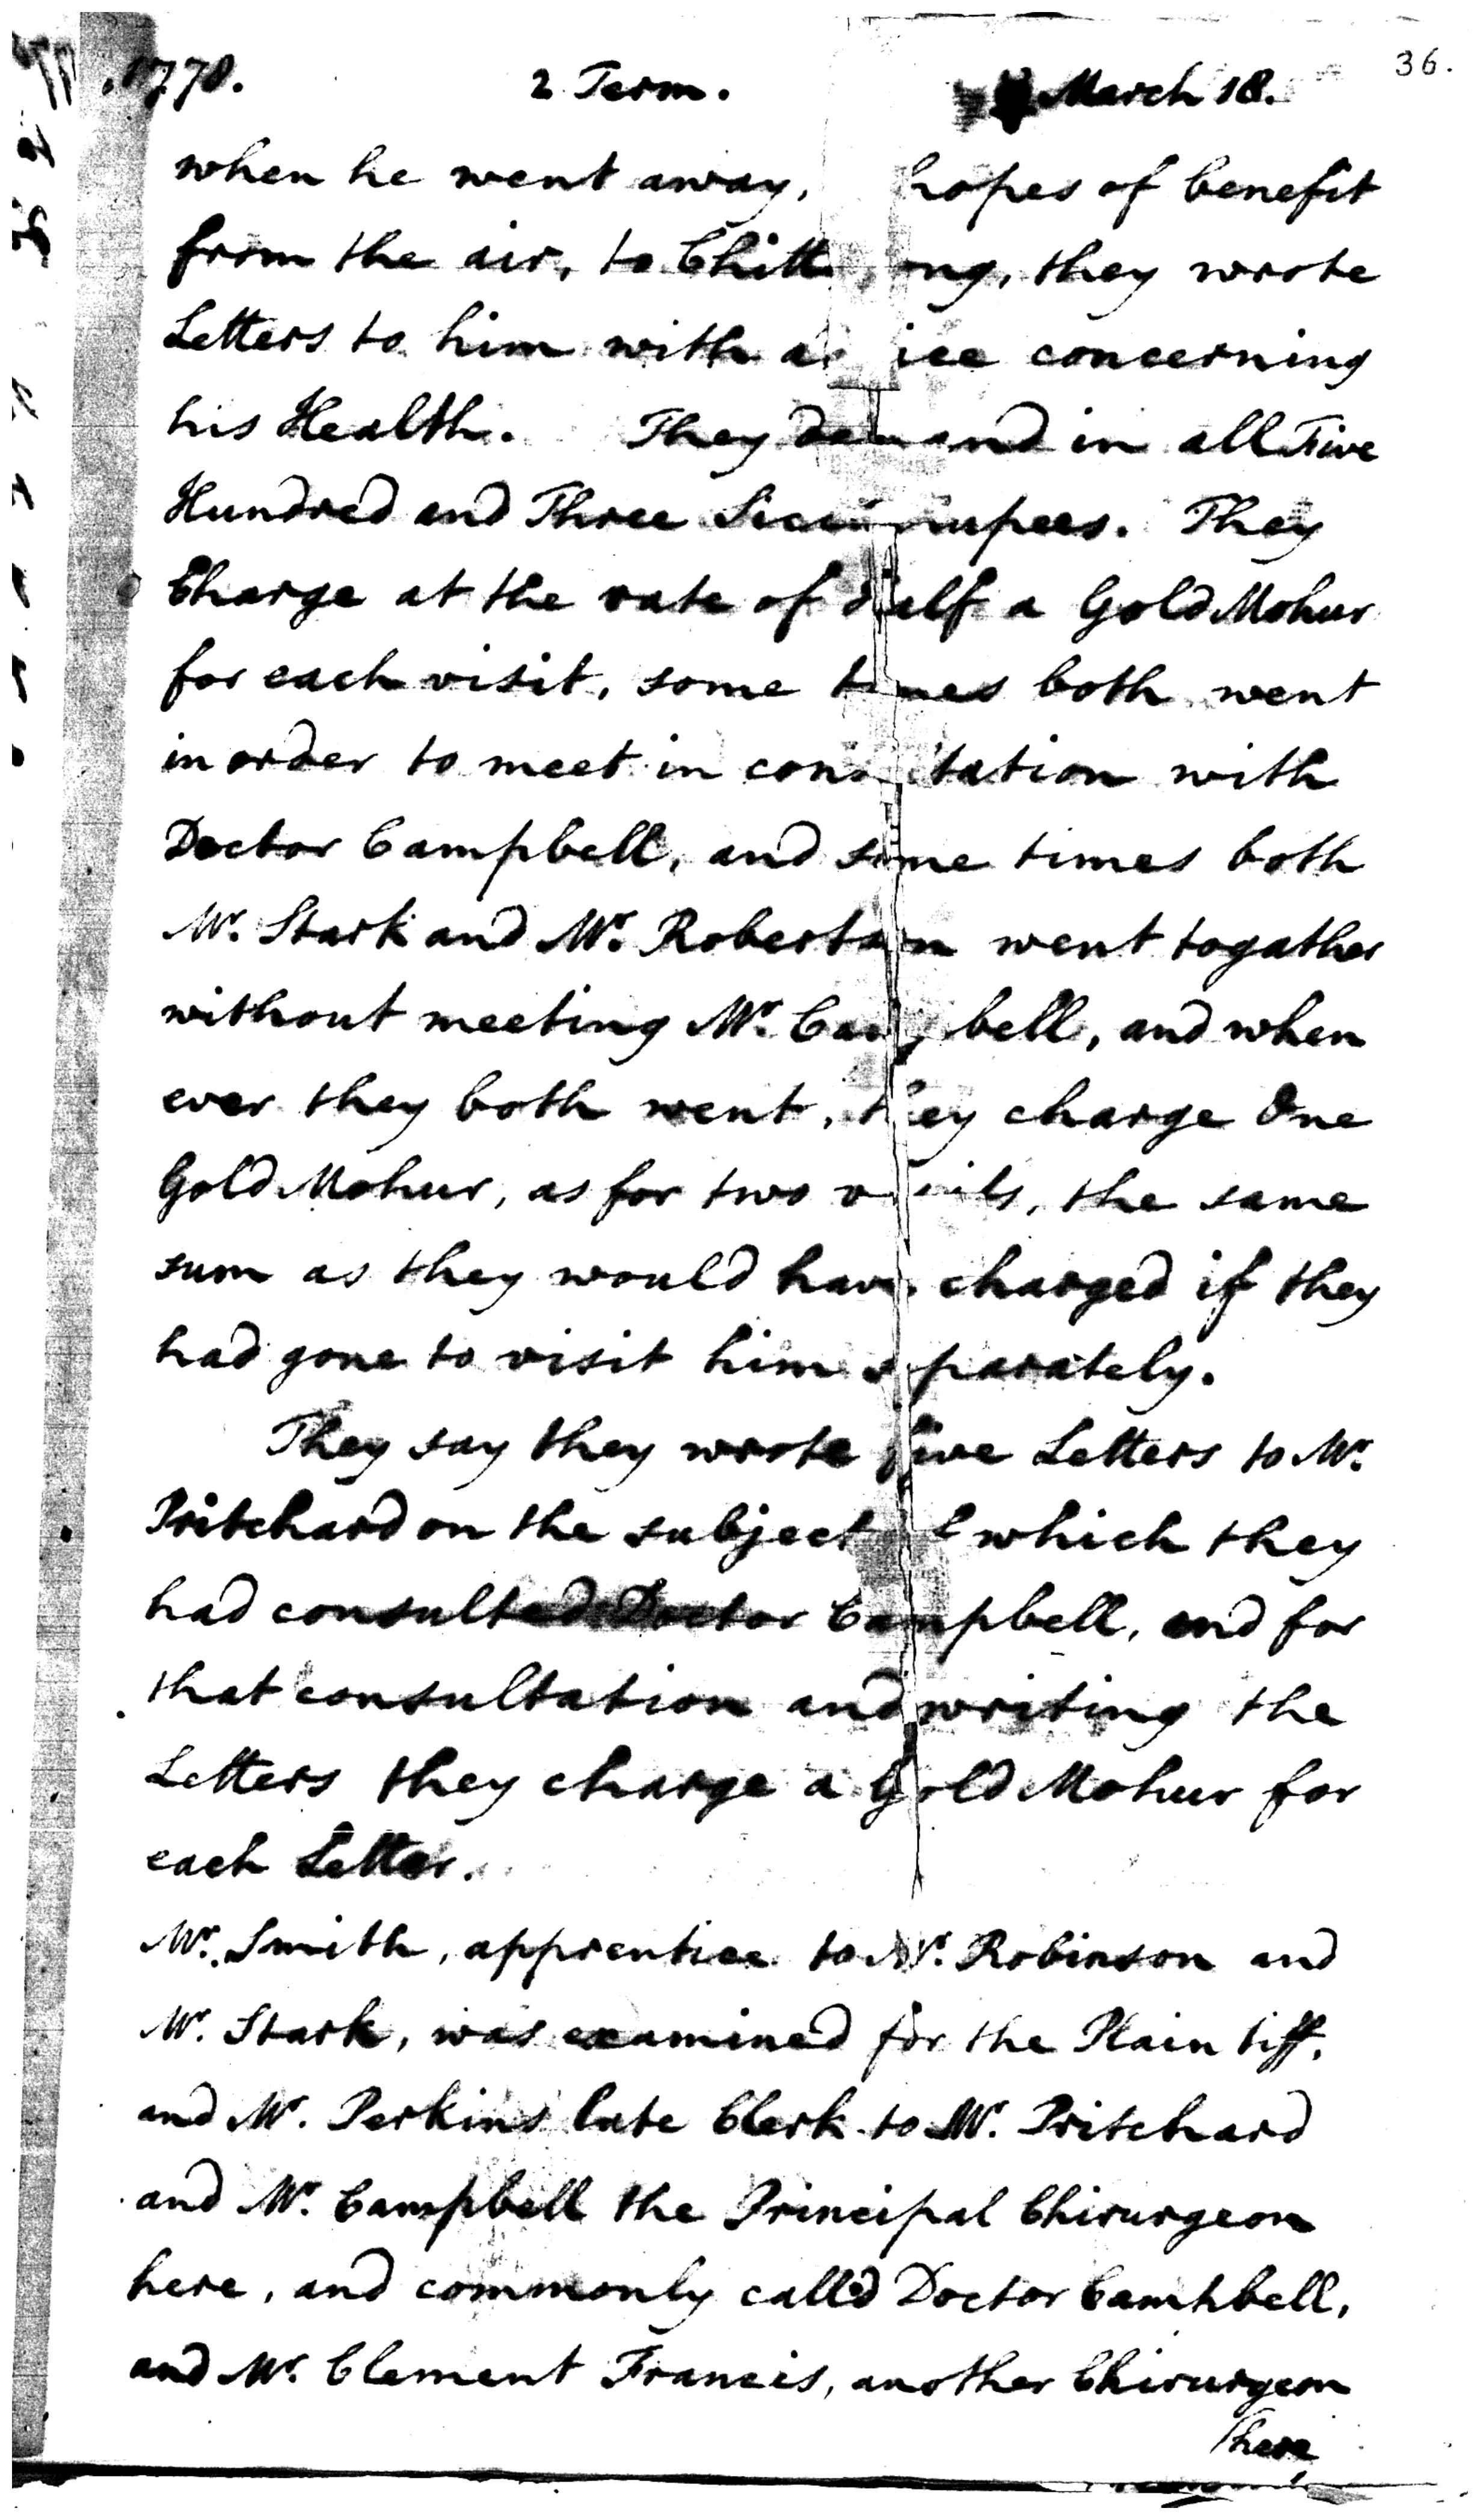 1778. 2 Term. March 18. 36.
when he went away, hopes of benefit
from the air, to Chitt ong, they wrote
Letters to him with ad ice concerning
his Health. They demand in all Five
Hundred and Three Sicca rupees. They
Charge at the rate of half a Gold Mohur
for each visit, some times both went
in order to meet in cons tation with
Doctor Campbell, and some times both
Mr. Stark and Mr. Robertson went togather
without meeting Mr. Campbell, and when
ever they both went, they charge One
Gold Mohur, as for two visits, the same
sum as they would have charged if they
had gone to visit him separately.
They say they wrote five Letters to Mr.
Pritchard on the subject which they
had consulted Doctor Campbell, and for
that consultation and writing the
Letters they charge a Gold Mohur for
each Letter.
Mr. Smith, apprentice to Mr. Robinson and
Mr. Stark, was examined for the Plain tiff,
and Mr. Perkins late Clerk to Mr. Pritchard
and Mr. Campbell the Principal Chirurgeon
here, and commonly call'd Doctor Campbell,
and Mr. Clement Francis, another Chirurgeon
here,